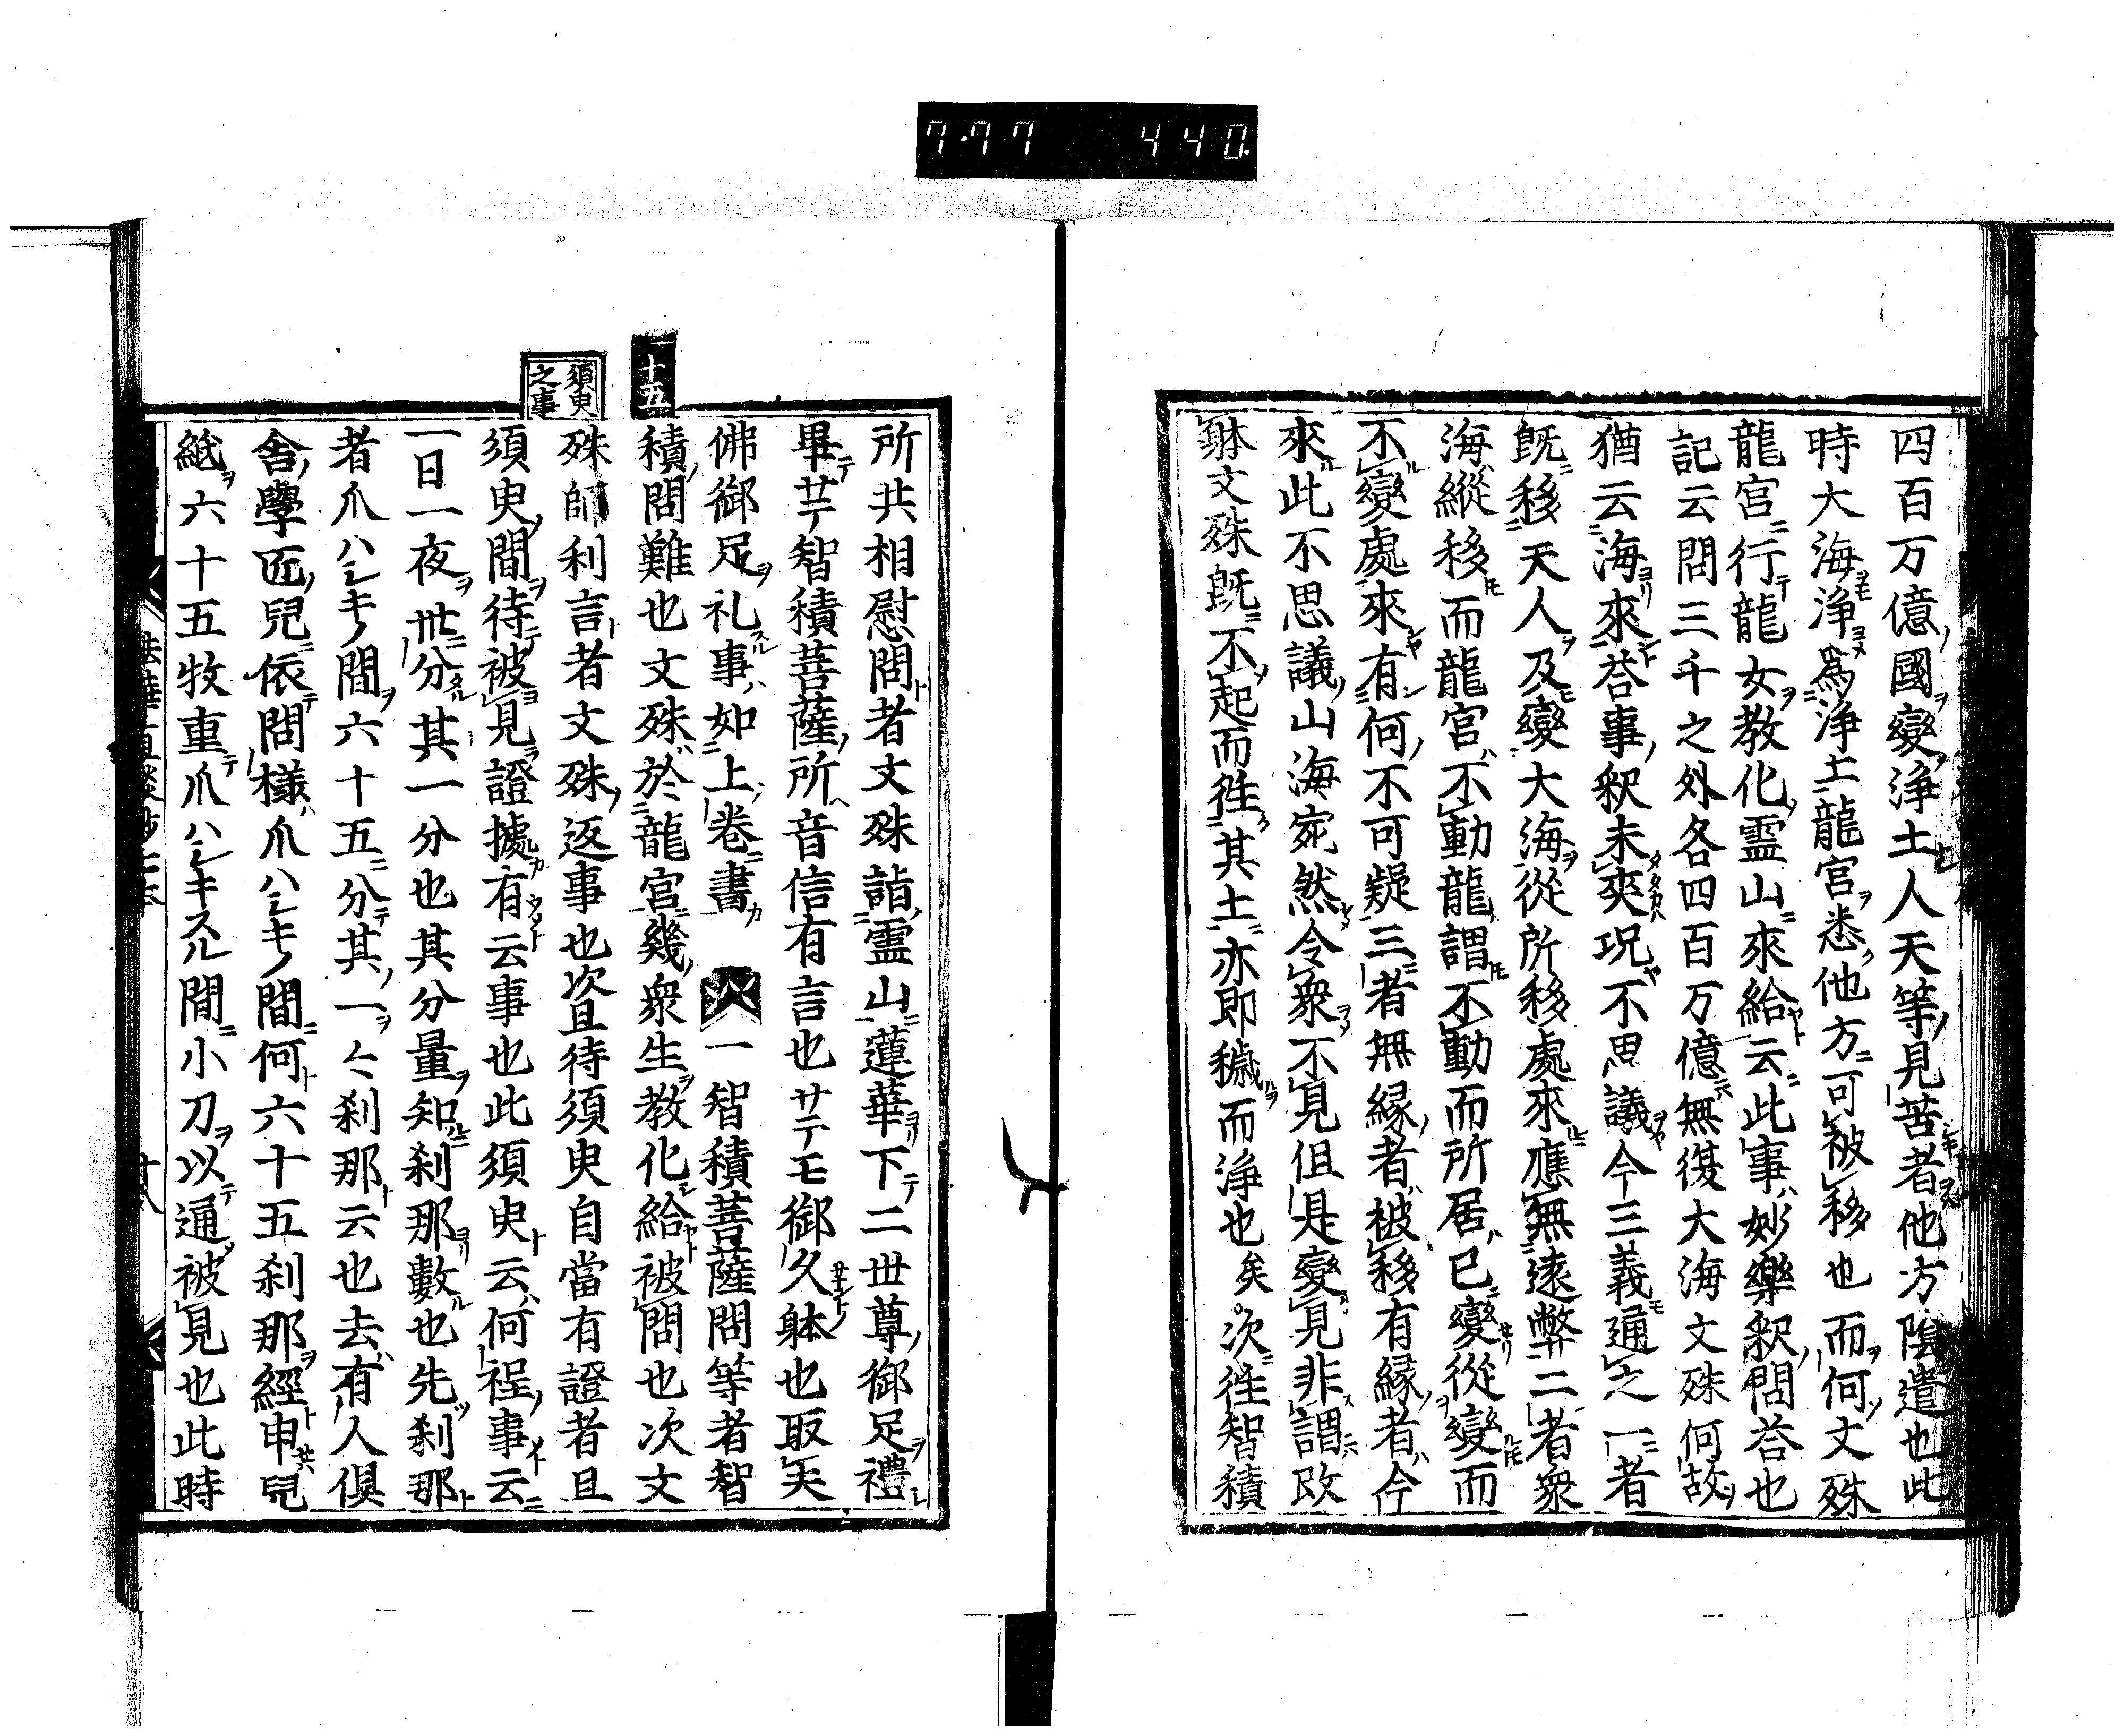 7.77 440.
四百万億國變浄土人天等見苦者他方陰遣也此
時大海浄爲浄土龍宮悉他方可被移也而何文殊
龍宮行龍女教化霊山來給云此事妙樂釈問荅也
記云問三千之外各四百万億無復大海文殊何故
猶云海來荅事釈未夾况不思議今三義通之一者
既移天人及變大海從所移處來應無遠弊二者衆
海縱移而龍宮不動龍謂不動而所居已變從變而
不變處來有何不可疑三者無縁者被移有縁者今
來此不思議山海宛然令衆不見但是變見非謂改
鉢文殊既不起而徃其土亦即穢而浄也矣次徃智積
所共相慰問者文殊詣霊山蓮華下テ二世尊御足禮
畢サテ智積菩薩所音信有言也サテモ御久躰也取矢
佛御足礼事如上巻書 一智積菩薩問等者智
積問難也文殊於龍宮幾衆生教化給被問也次文
殊師利言者文殊返事也次且待須臾自當有證者且
須臾間待被見證據有云事也此須臾云何程事云
一日一夜卅分其一分也其分量知刹那數也先刹那
者爪ハシキノ間六十五分其一ヲ刹那云也去有人俱
舎學匠兒依問様爪ハシキノ間何六十五刹那經申兒
紙六十五牧重爪ハシキスル間小刀以通被見也此時
十五
須臾
之事